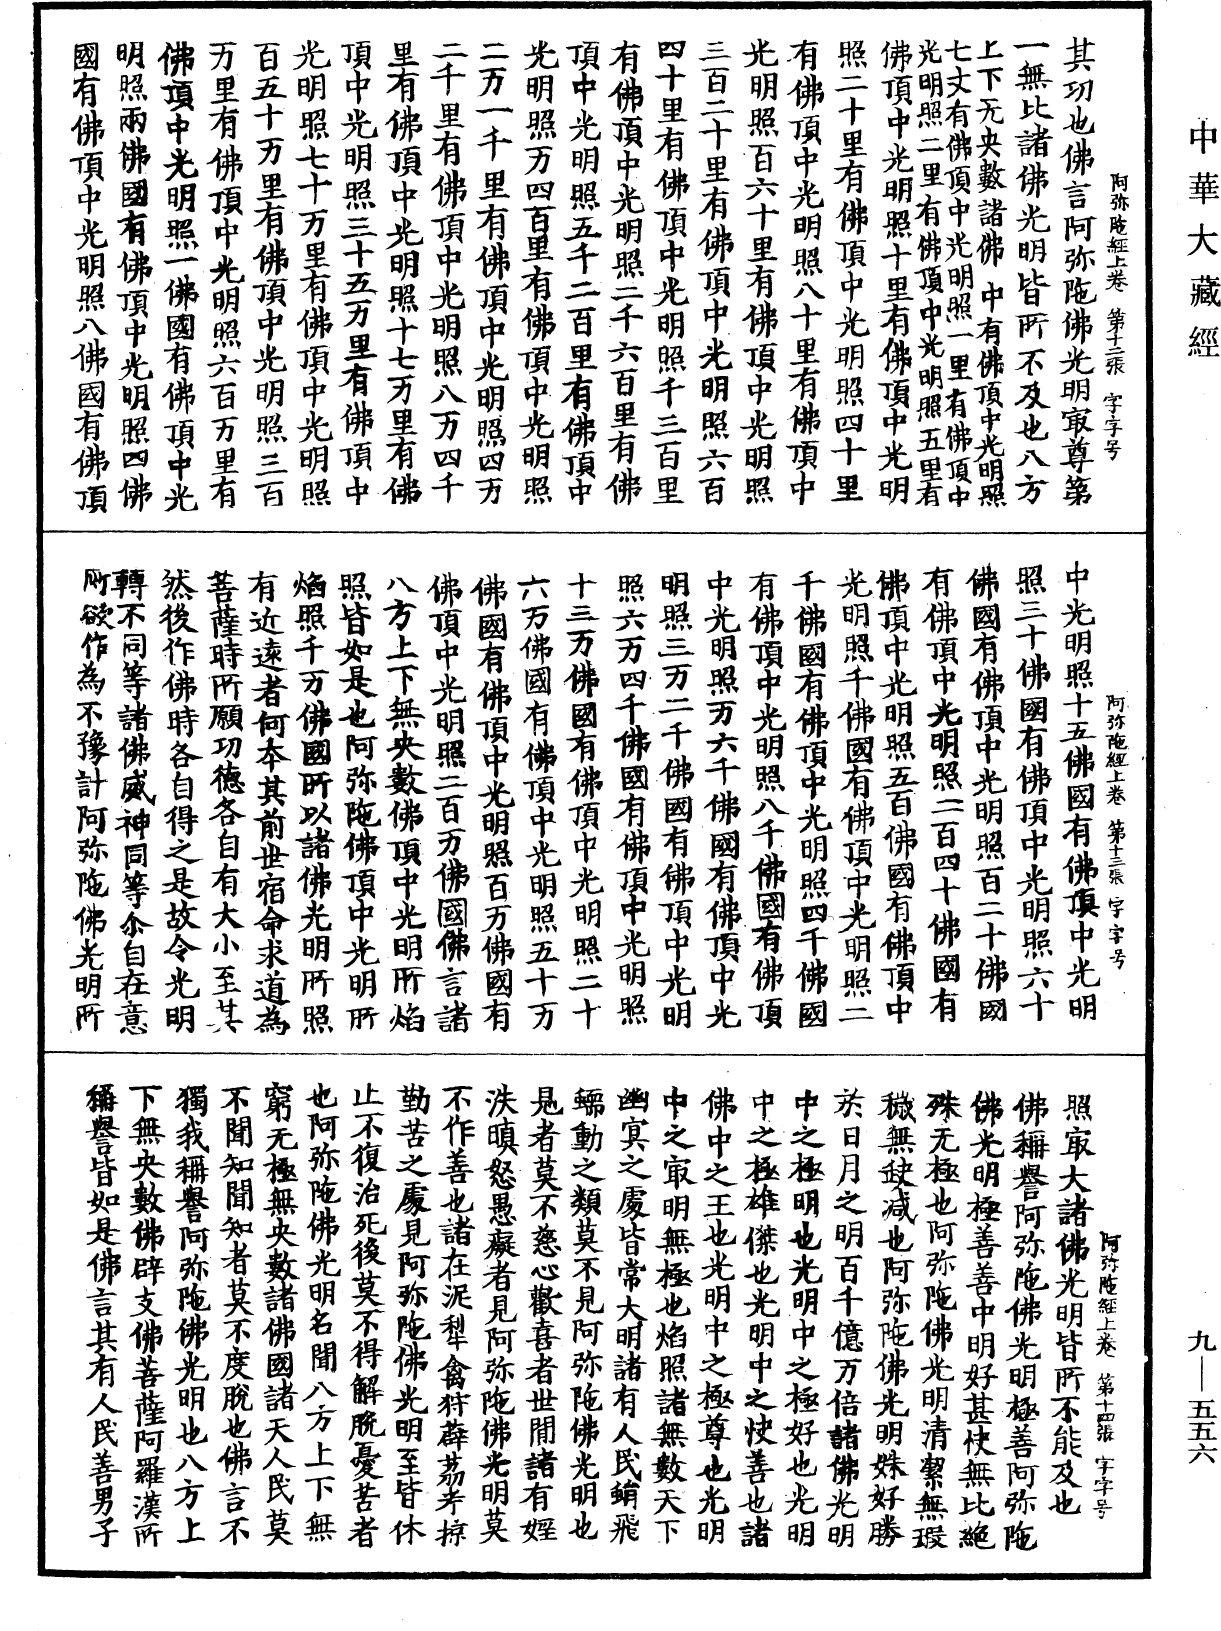 中華大藏經
阿弥陁經上卷 第十二張 字字号
其功也佛言阿弥陁佛光明㝡尊第
一無比諸佛光明皆所不及也八方
上下无央數諸佛中有佛頂中光明照
七丈有佛頂中光明照一里有佛頂中
光明照二里有佛頂中光明照五里有
佛頂中光明照十里有佛頂中光明
照二十里有佛頂中光明照四十里
有佛頂中光明照八十里有佛頂中
光明照百六十里有佛頂中光明照
三百二十里有佛頂中光明照六百
四十里有佛頂中光明照千三百里
有佛頂中光明照二千六百里有佛
頂中光明照五千二百里有佛頂中
光明照万四百里有佛頂中光明照
二万一千里有佛頂中光明照四万
二千里有佛頂中光明照八万四千
里有佛頂中光明照十七万里有佛
頂中光明照三十五万里有佛頂中
光明照七十万里有佛頂中光明照
百五十万里有佛頂中光明照三百
万里有佛頂中光明照六百万里有
佛頂中光明照一佛國有佛頂中光
明照兩佛國有佛頂中光明照四佛
國有佛頂中光明照八佛國有佛頂
阿弥陁經上卷 第十三張 字字号
中光明照十五佛國有佛頂中光明
照三十佛國有佛頂中光明照六十
佛國有佛頂中光明照百二十佛國
有佛頂中光明照二百四十佛國有
佛頂中光明照五百佛國有佛頂中
光明照千佛國有佛頂中光明照二
千佛國有佛頂中光明照四千佛國
有佛頂中光明照八千佛國有佛頂
中光明照万六千佛國有佛頂中光
明照三万二千佛國有佛頂中光明
照六万四千佛國有佛頂中光明照
十三万佛國有佛頂中光明照二十
六万佛國有佛頂中光明照五十万
佛國有佛頂中光明照百万佛國有
佛頂中光明照二百万佛國佛言諸
八方上下無央數佛頂中光明所焰
照皆如是也阿弥陁佛頂中光明所
焰照千万佛國所以諸佛光明所照
有近遠者何夲其前世宿命求道為
菩薩時所願功德各自有大小至其
然後作佛時各自得之是故令光明
轉不同等諸佛威神同等尒自在意
所欲作為不豫計阿弥陁佛光明所
阿弥陁經上卷 第十四張 字字号
照㝡大諸佛光明皆所不能及也
佛稱譽阿弥陁佛光明極善阿弥陁
佛光明極善善中明好甚快無比絶
殊无極也阿弥陁佛光明清潔無瑕
穢無缺减也阿弥陁佛光明姝好勝
於日月之明百千億万倍諸佛光明
中之極明也光明中之極好也光明
中之極雄傑也光明中之快善也諸
佛中之王也光明中之極尊也光明
中之㝡明無極也焰照諸無數天下
幽冥之處皆常大明諸有人民蜎飛
蠕動之類莫不見阿弥陁佛光明也
見者莫不慈心歡喜者世間諸有婬
泆瞋怒愚癡者見阿弥陁佛光明莫
不作善也諸在泥犁禽狩薜荔考掠
勤苦之處見阿弥陁佛光明至皆休
止不復治死後莫不得解脫憂苦者
也阿弥陁佛光明名聞八方上下無
窮无極無央數諸佛國諸天人民莫
不聞知聞知者莫不度脫也佛言不
獨我稱譽阿弥陁佛光明也八方上
下無央數佛辟支佛菩薩阿羅漢所
稱譽皆如是佛言其有人民善男子
九—五五六